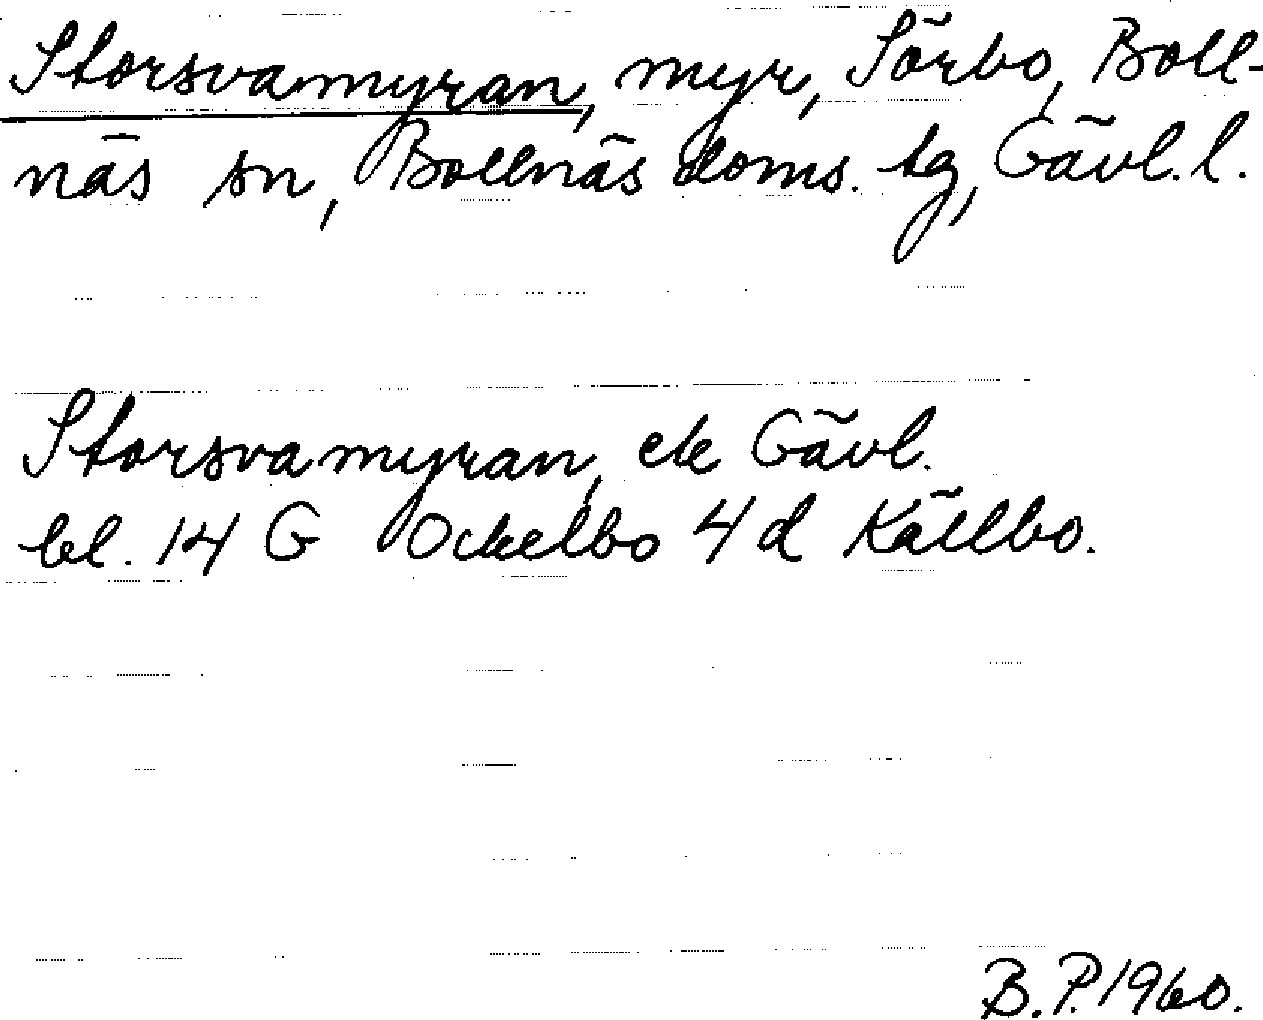 Storsvammyran, myr, Sörbo, Boll-
näs sn, Bollnäs doms. tg, Gävl. l.
Storsvamyran, ek Gävl.
bl. 14 G Ockelbo 4 d Källbo.
B. P. 1960.